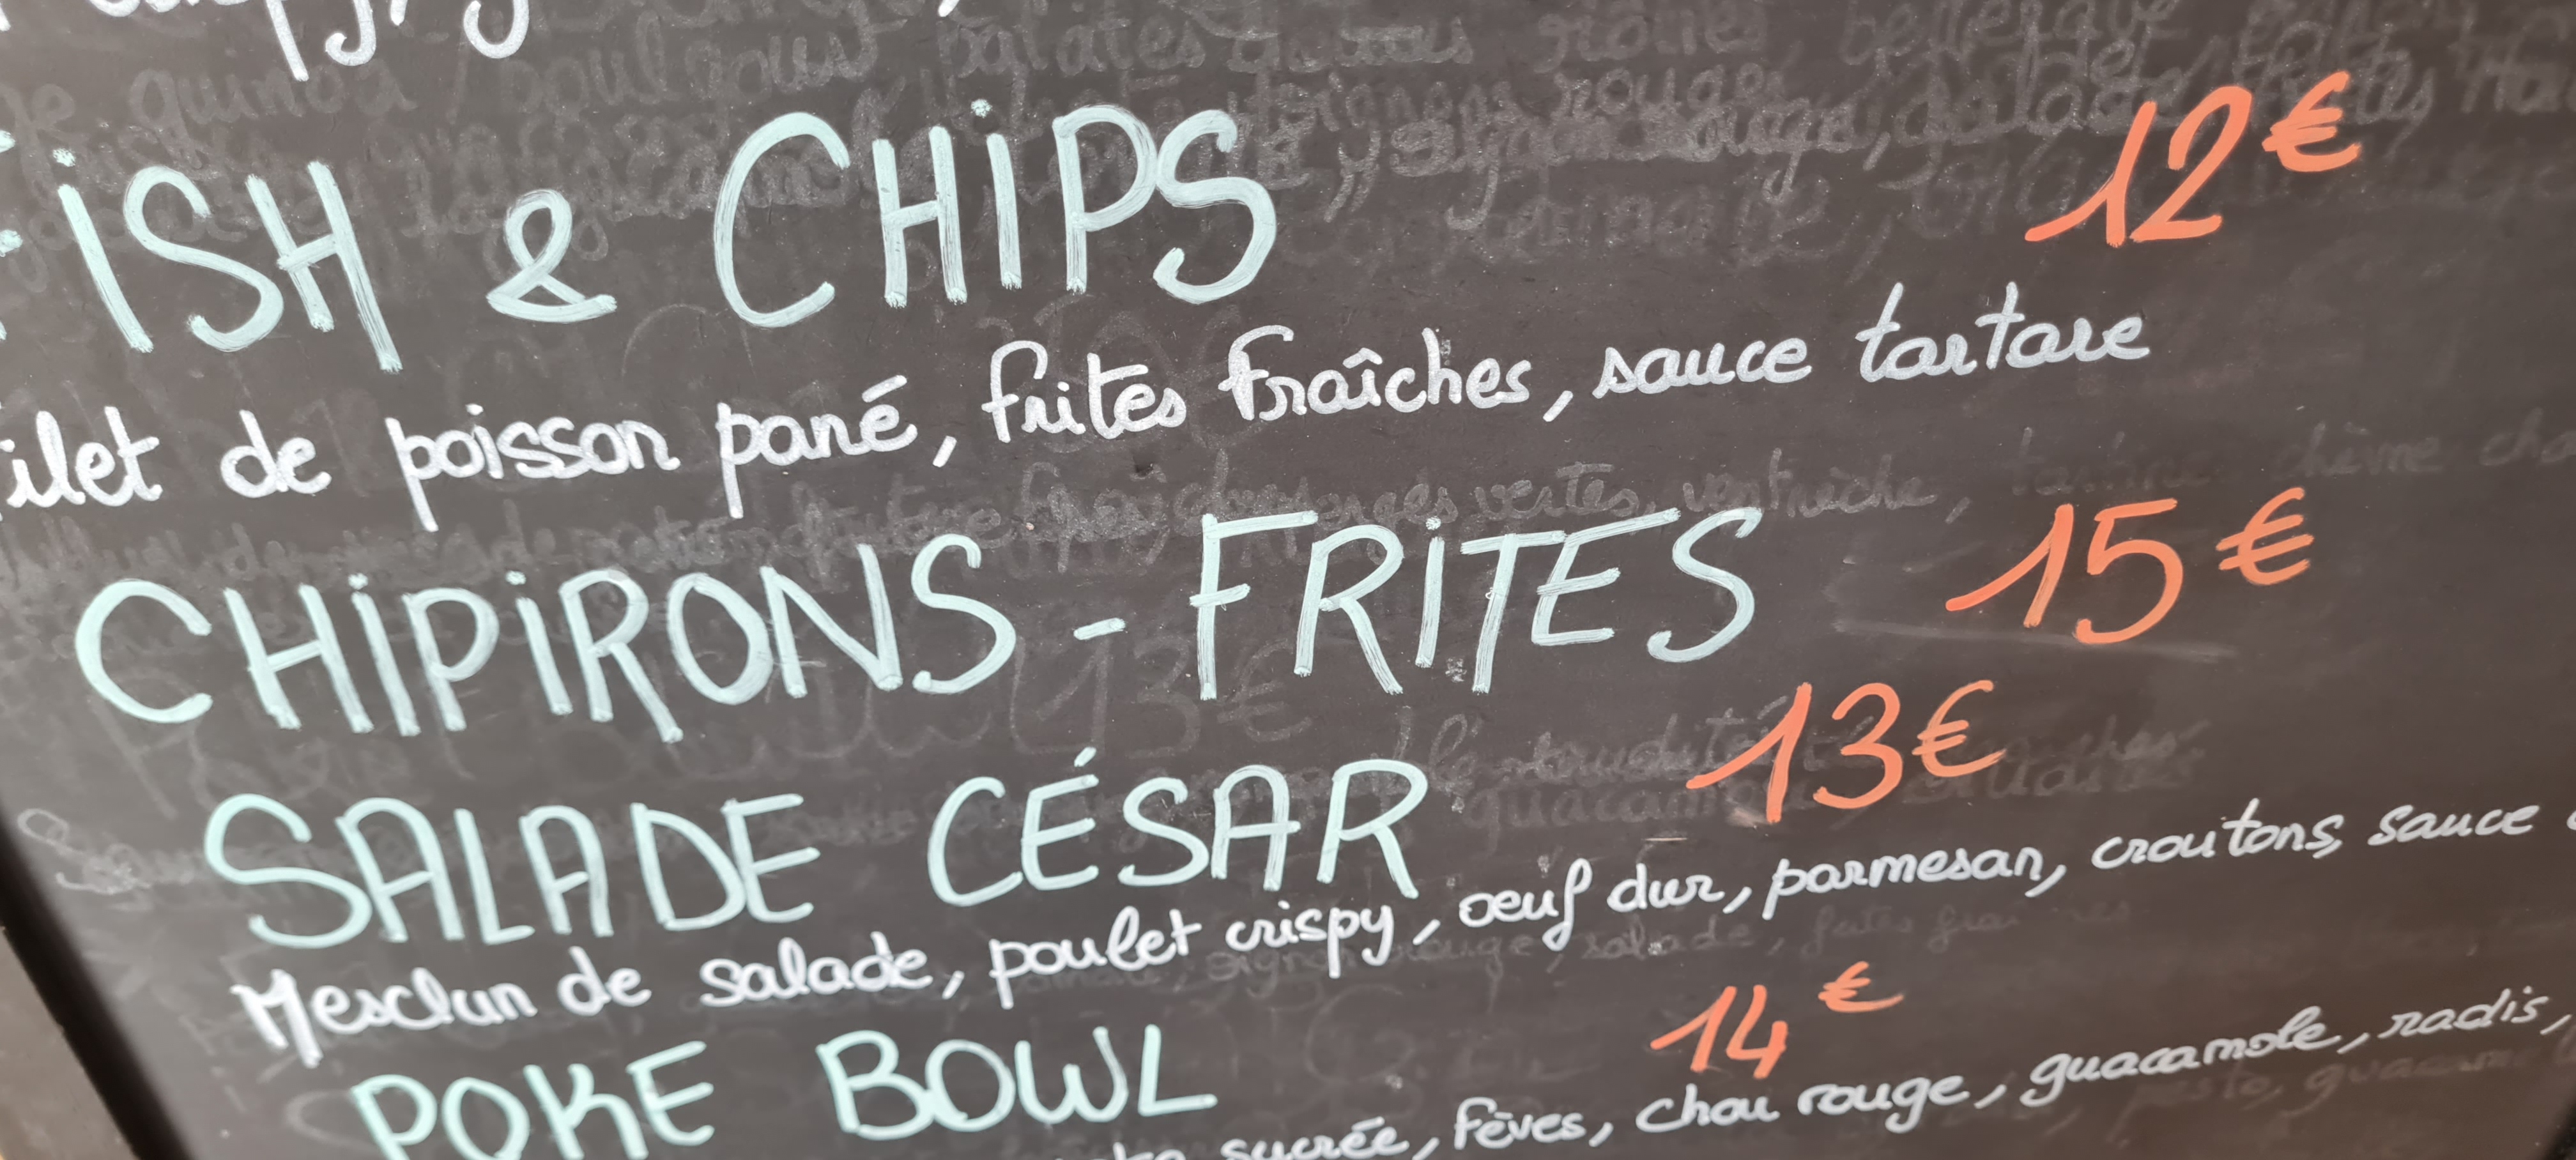 FISH & CHIPS 12€
filet de poisson pané, frites fraîches, sauce tartare
CHIPIRONS - FRITES 15€
SALADE CÉSAR 13€
Mesclun de salade, poulet crispy, oeuf dur, parmesan, croutons, sauce
POKE BOWL 14€
sucrée, fèves, chou rouge, guacamole, radis,